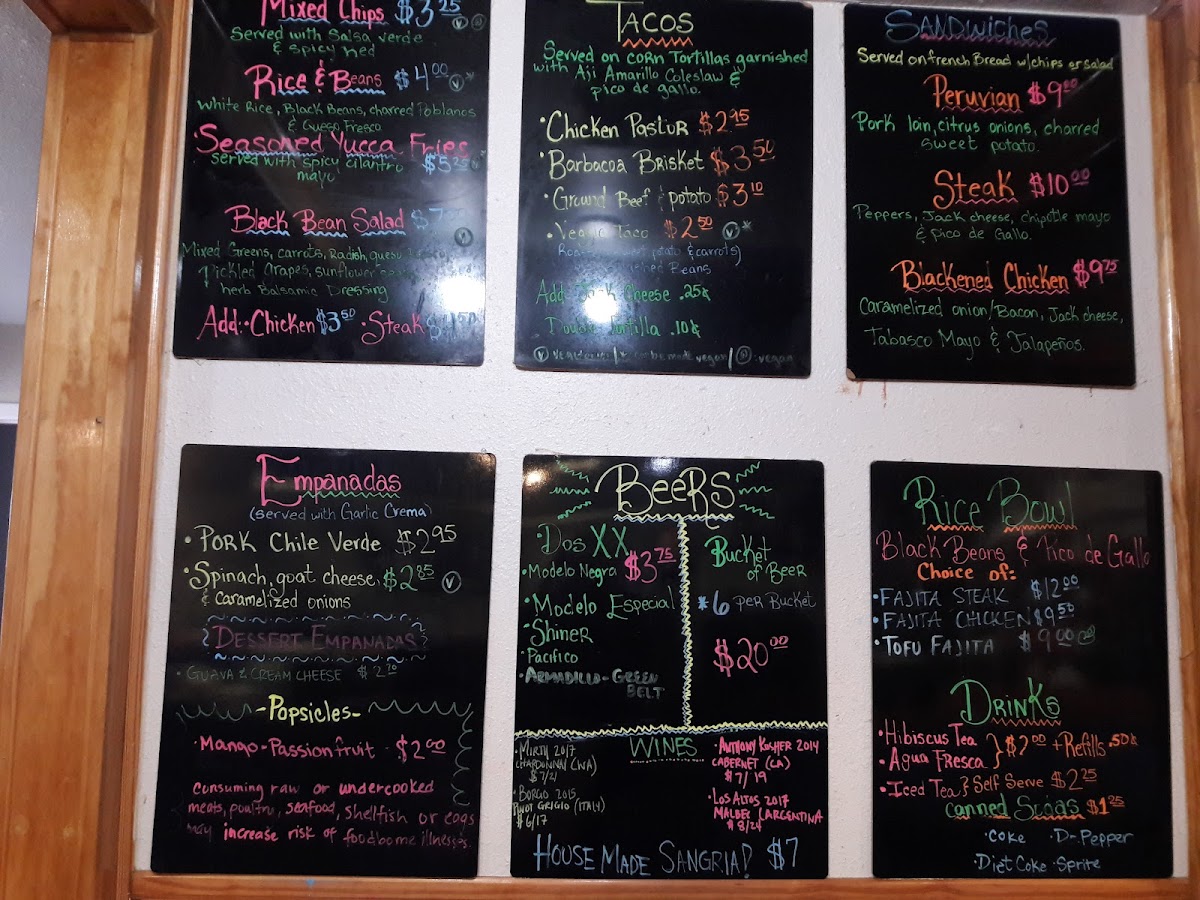 Mixed Chips $3.25
Served with Salsa verde
& spicy red
Rice & Beans $4.00 (V)*
White Rice, Black Beans, charred Poblanos
& Queso Fresco
Seasoned Yucca Fries
served with spicy cilantro $5.25
mayo
Black Bean Salad $7
Mixed Greens, carrots, Radish, queso
Pickled Grapes, sunflower
herb Balsamic Dressing
Add: •Chicken $3.50 •Steak $4.50
Tacos
Served on corn Tortillas garnished
with Aji Amarillo Coleslaw &
pico de gallo.
•Chicken Pastur $2.95
•Barbacoa Brisket $3.50
•Ground Beef & potato $3.10
•Veggie Taco $2.50 (V)*
potato & carrots)
Beans
Add Jack Cheese .25¢
Double Tortilla .10¢
can be made vegan / vegan
Sandwiches
Served on french Bread w/chips or salad
Peruvian $9.00
Pork loin, citrus onions, charred
sweet potato.
Steak $10.00
Peppers, Jack cheese, chipotle mayo
& pico de Gallo.
Blackened Chicken $9.75
Caramelized onion/Bacon, Jack cheese,
Tabasco Mayo & Jalapeños.
Empanadas
(served with Garlic Crema)
•Pork Chile Verde $2.95
•Spinach, goat cheese, $2.85 (V)
& caramelized onions
Dessert Empanadas
•Guava & Cream Cheese $2.20
-Popsicles-
•Mango-Passionfruit • $2.00
consuming raw or undercooked
meats, poultry, seafood, shellfish or eggs
may increase risk of foodborne illnesses.
Beers
•Dos XX
•Modelo Negra $3.75
•Modelo Especial
•Shiner
•Pacifico
•Armadillo-Green
Belt
Bucket
of Beer
*6 per Bucket
$20.00
Wines
•Mirth 2017
Chardonnay (WA)
$7/21
•Borgo 2015
Pinot Grigio (Italy)
$6/17
•Anthony Kosher 2014
Cabernet (CA)
$7/19
•Los Altos 2017
Malbec (Argentina
$8/24
House Made Sangria! $7
Rice Bowl
Black Beans & Pico de Gallo
Choice of:
•Fajita Steak $12.00
•Fajita Chicken $9.50
•Tofu Fajita $9.00
Drinks
•Hibiscus Tea
•Agua Fresca } $2.00 + Refills .50¢
•Iced Tea } Self Serve $2.25
canned Sodas $1.25
•Coke •Dr-Pepper
•Diet Coke •Sprite